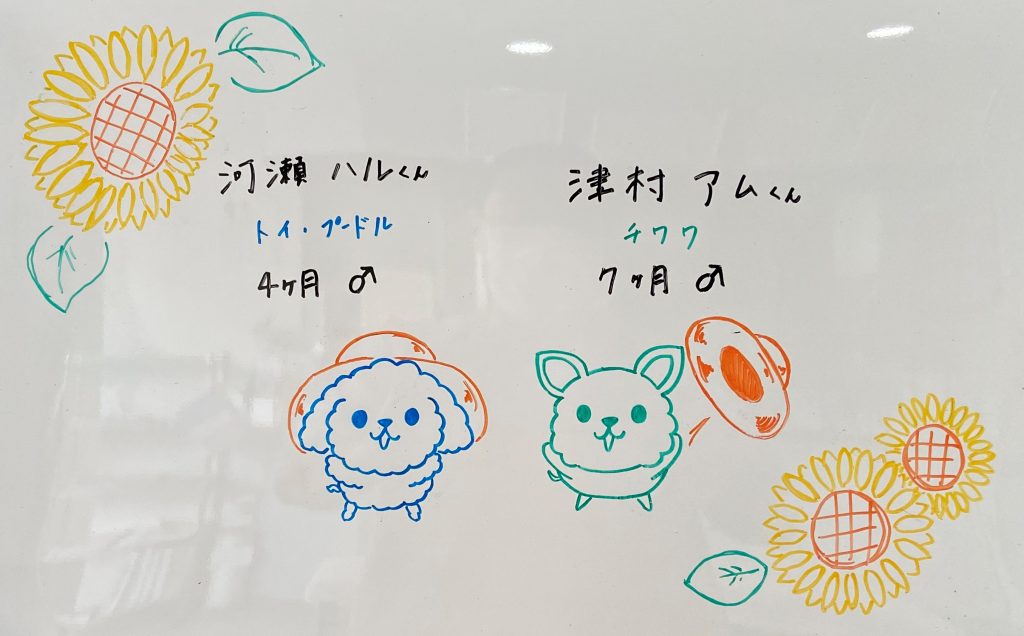 河瀬 ハルくん
トイ・プードル
4ヶ月 ♂
津村 アムくん
チワワ
7ヶ月 ♂